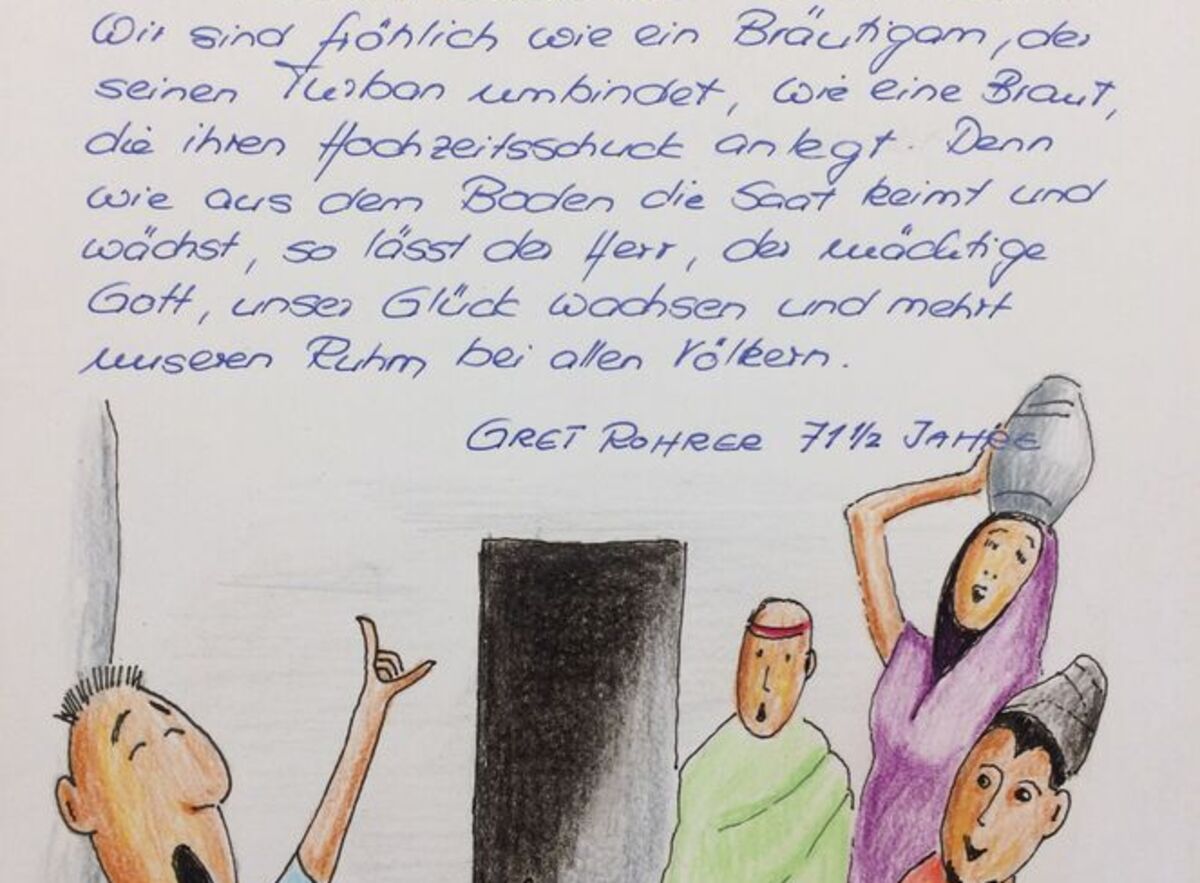 Wir sind fröhlich wie ein Bräutigam, der
seinen Turban umbindet, wie eine Braut,
die ihren Hochzeitsschuck anlegt. Denn
wie aus dem Boden die Saat keimt und
wächst, so lässt der Herr, der mächtige
Gott, unser Glück wachsen und mehrt
unseren Ruhm bei allen Völkern.
GRET ROHRER 71 1/2 JAHRE